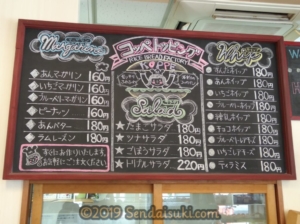 Margarine
あんマーガリン 160円
いちごマーガリン 160円
ブルーベリーマーガリン 160円
ピーナッツ 160円
あんバター 180円
ラムレーズン 180円
コッペトッピング
RICE BREAD FACTORY
COPPE
Salad
たまごサラダ 180円
ツナサラダ 180円
ごぼうサラダ 180円
トリプルサラダ 220円
ホイップ
あんホイップ 180円
いちごホイップ 180円
ブルーベリーホイップ 180円
練乳ホイップ 180円
チョコホイップ 180円
ブルーベリーチーズ 180円
いちごレアチーズ 180円
ティラミス 180円
©2019 Sendaisuki.com